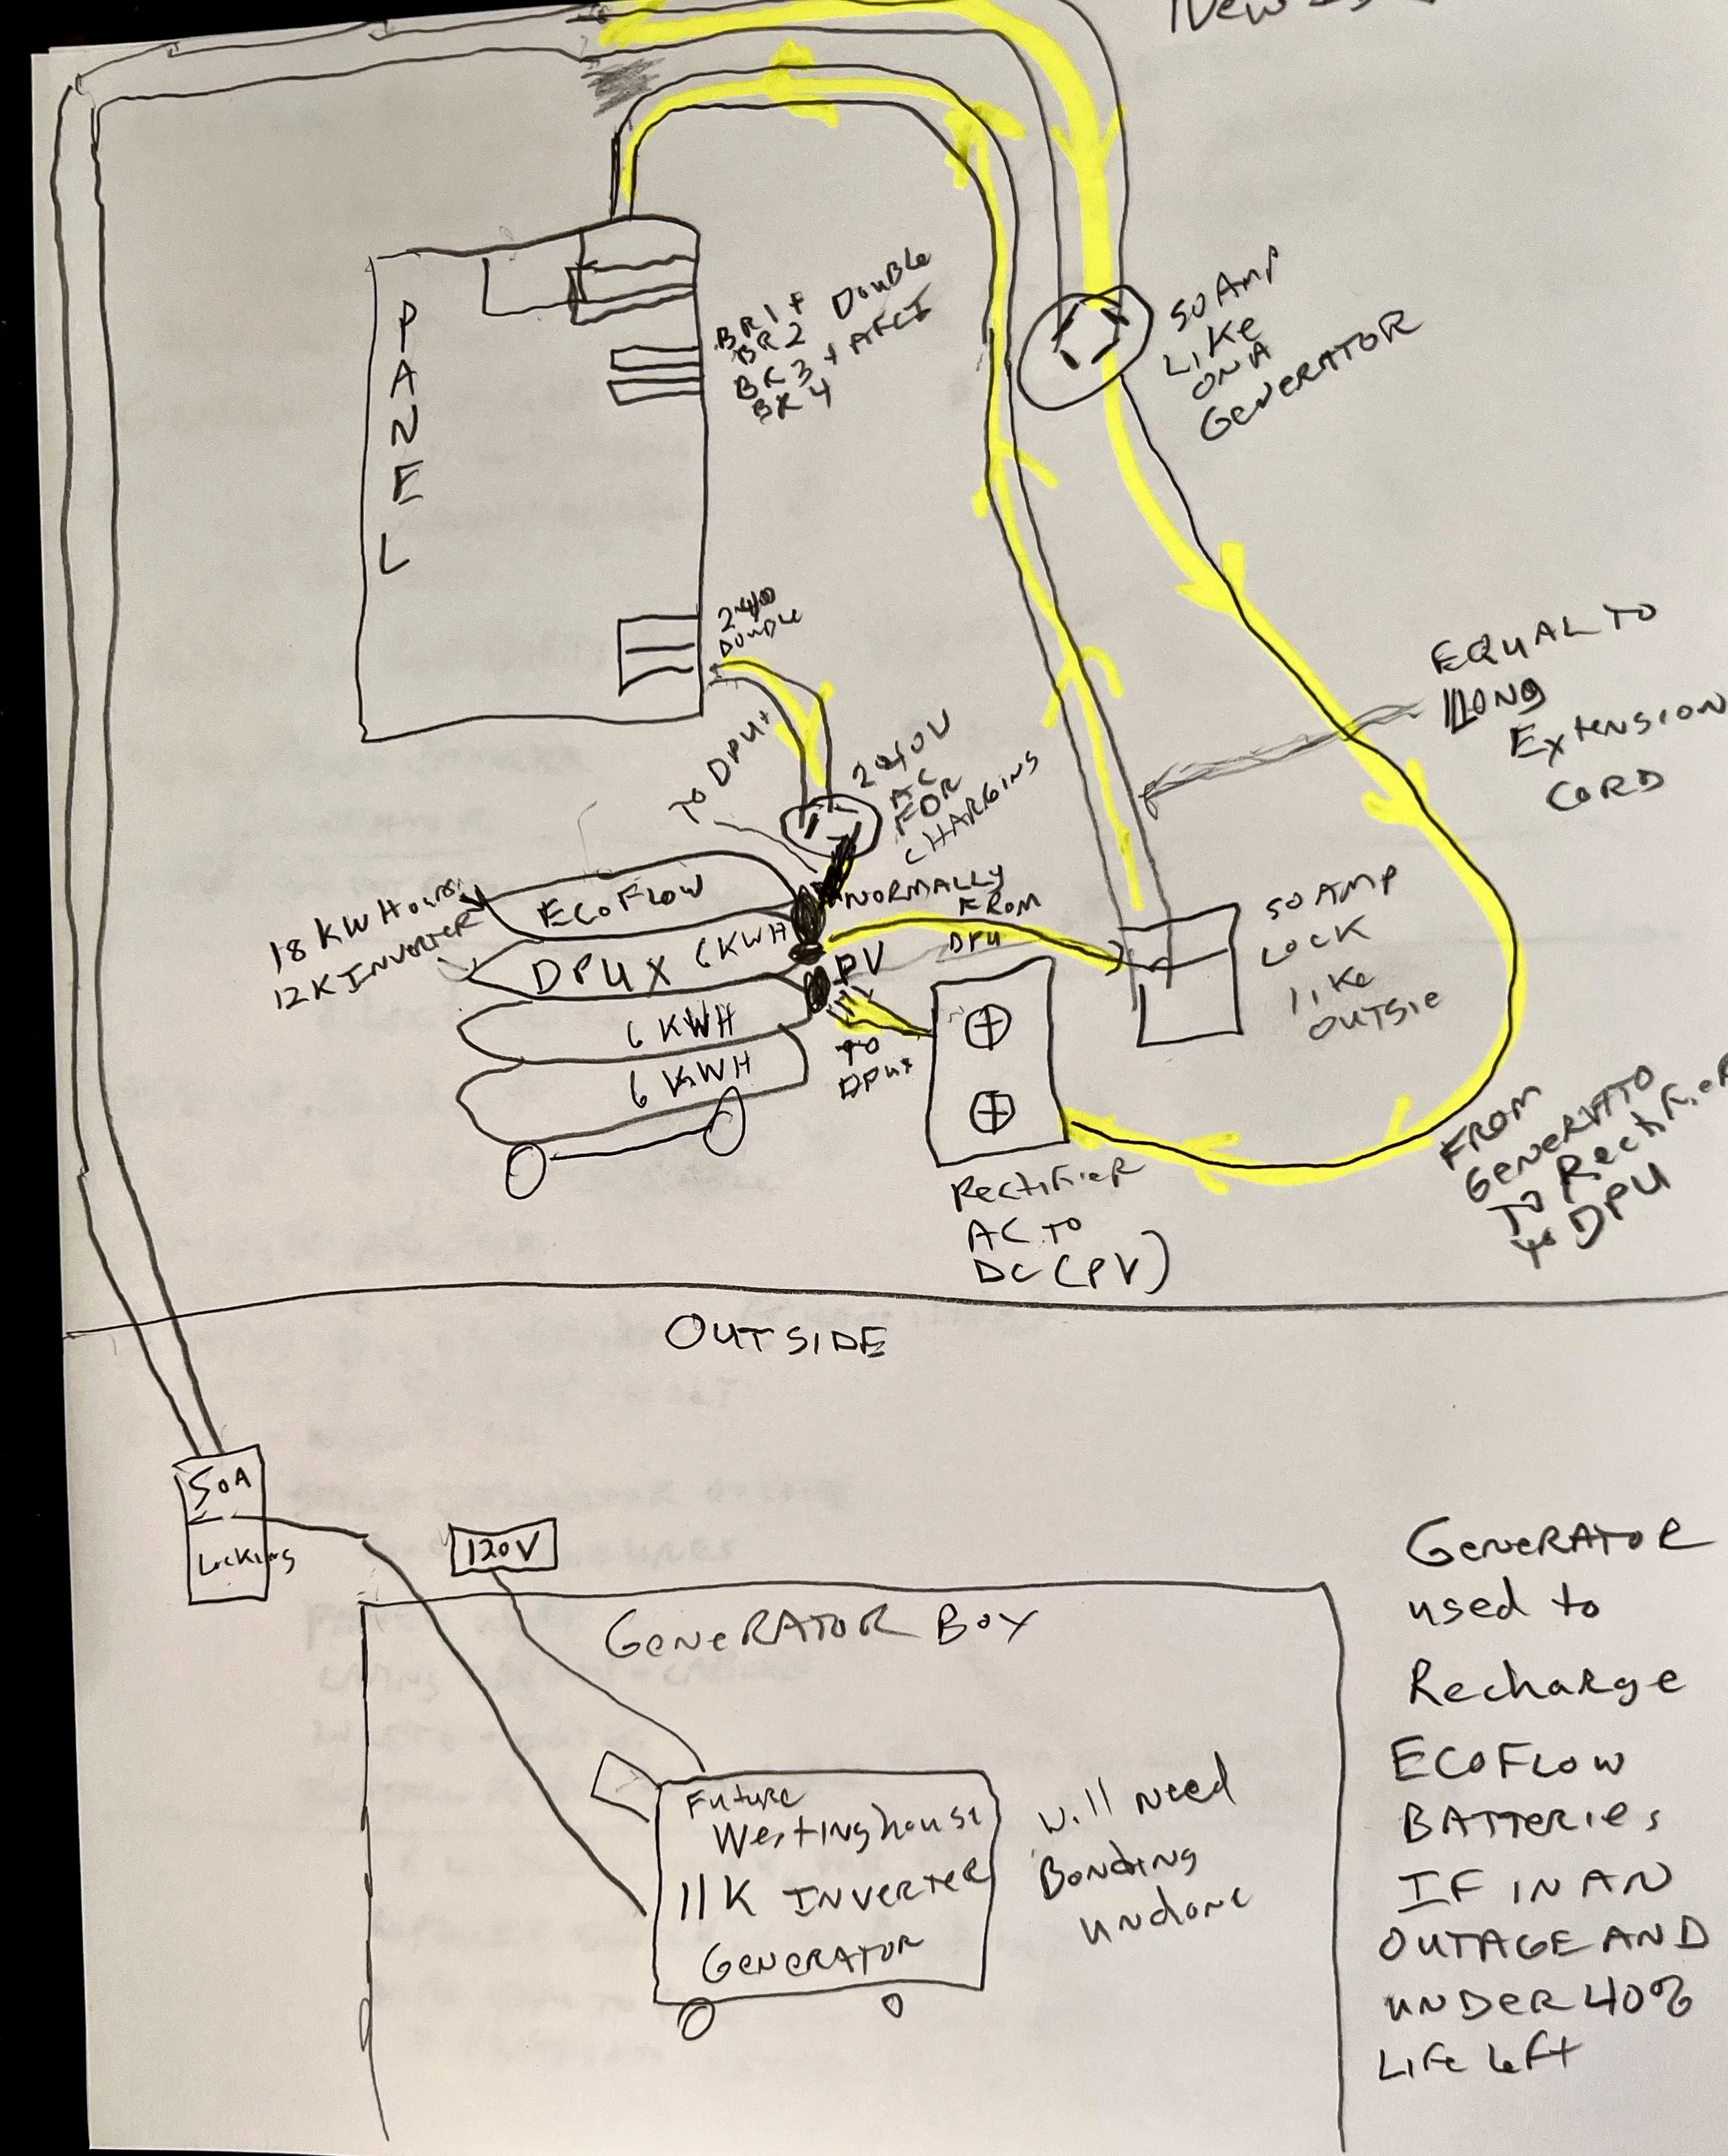 New
PANEL
BR1 +
BR2 DOUBLE
BK3 + AFCI
BK4
50 AMP
LIKE
ON A
GENERATOR
240
DOUBLE
TO DPUX
240V
AC
FOR
CHARGING
EQUAL TO
LONG
EXTENSION
CORD
18 KW Hours
12K INVERTER
ECOFLOW
DPUX 6KWH
6 KWH
6 KWH
NORMALLY
FROM
DPU
PV
TO
DPUX
50 AMP
LOCK
LIKE
OUTSIE
RECTIFIER
AC TO
DC (PV)
FROM
GENERATO
TO RectifieR
to DPU
OUTSIDE
50A
Locking
120V
GENERATOR BOX
Future
Westinghouse
11K INVERTER
GENERATOR
will need
Bonding
undone
GENERATOR
used to
Recharge
ECOFLOW
BATTERIES
IF IN AN
OUTAGE AND
UNDER 40%
LIFE Left